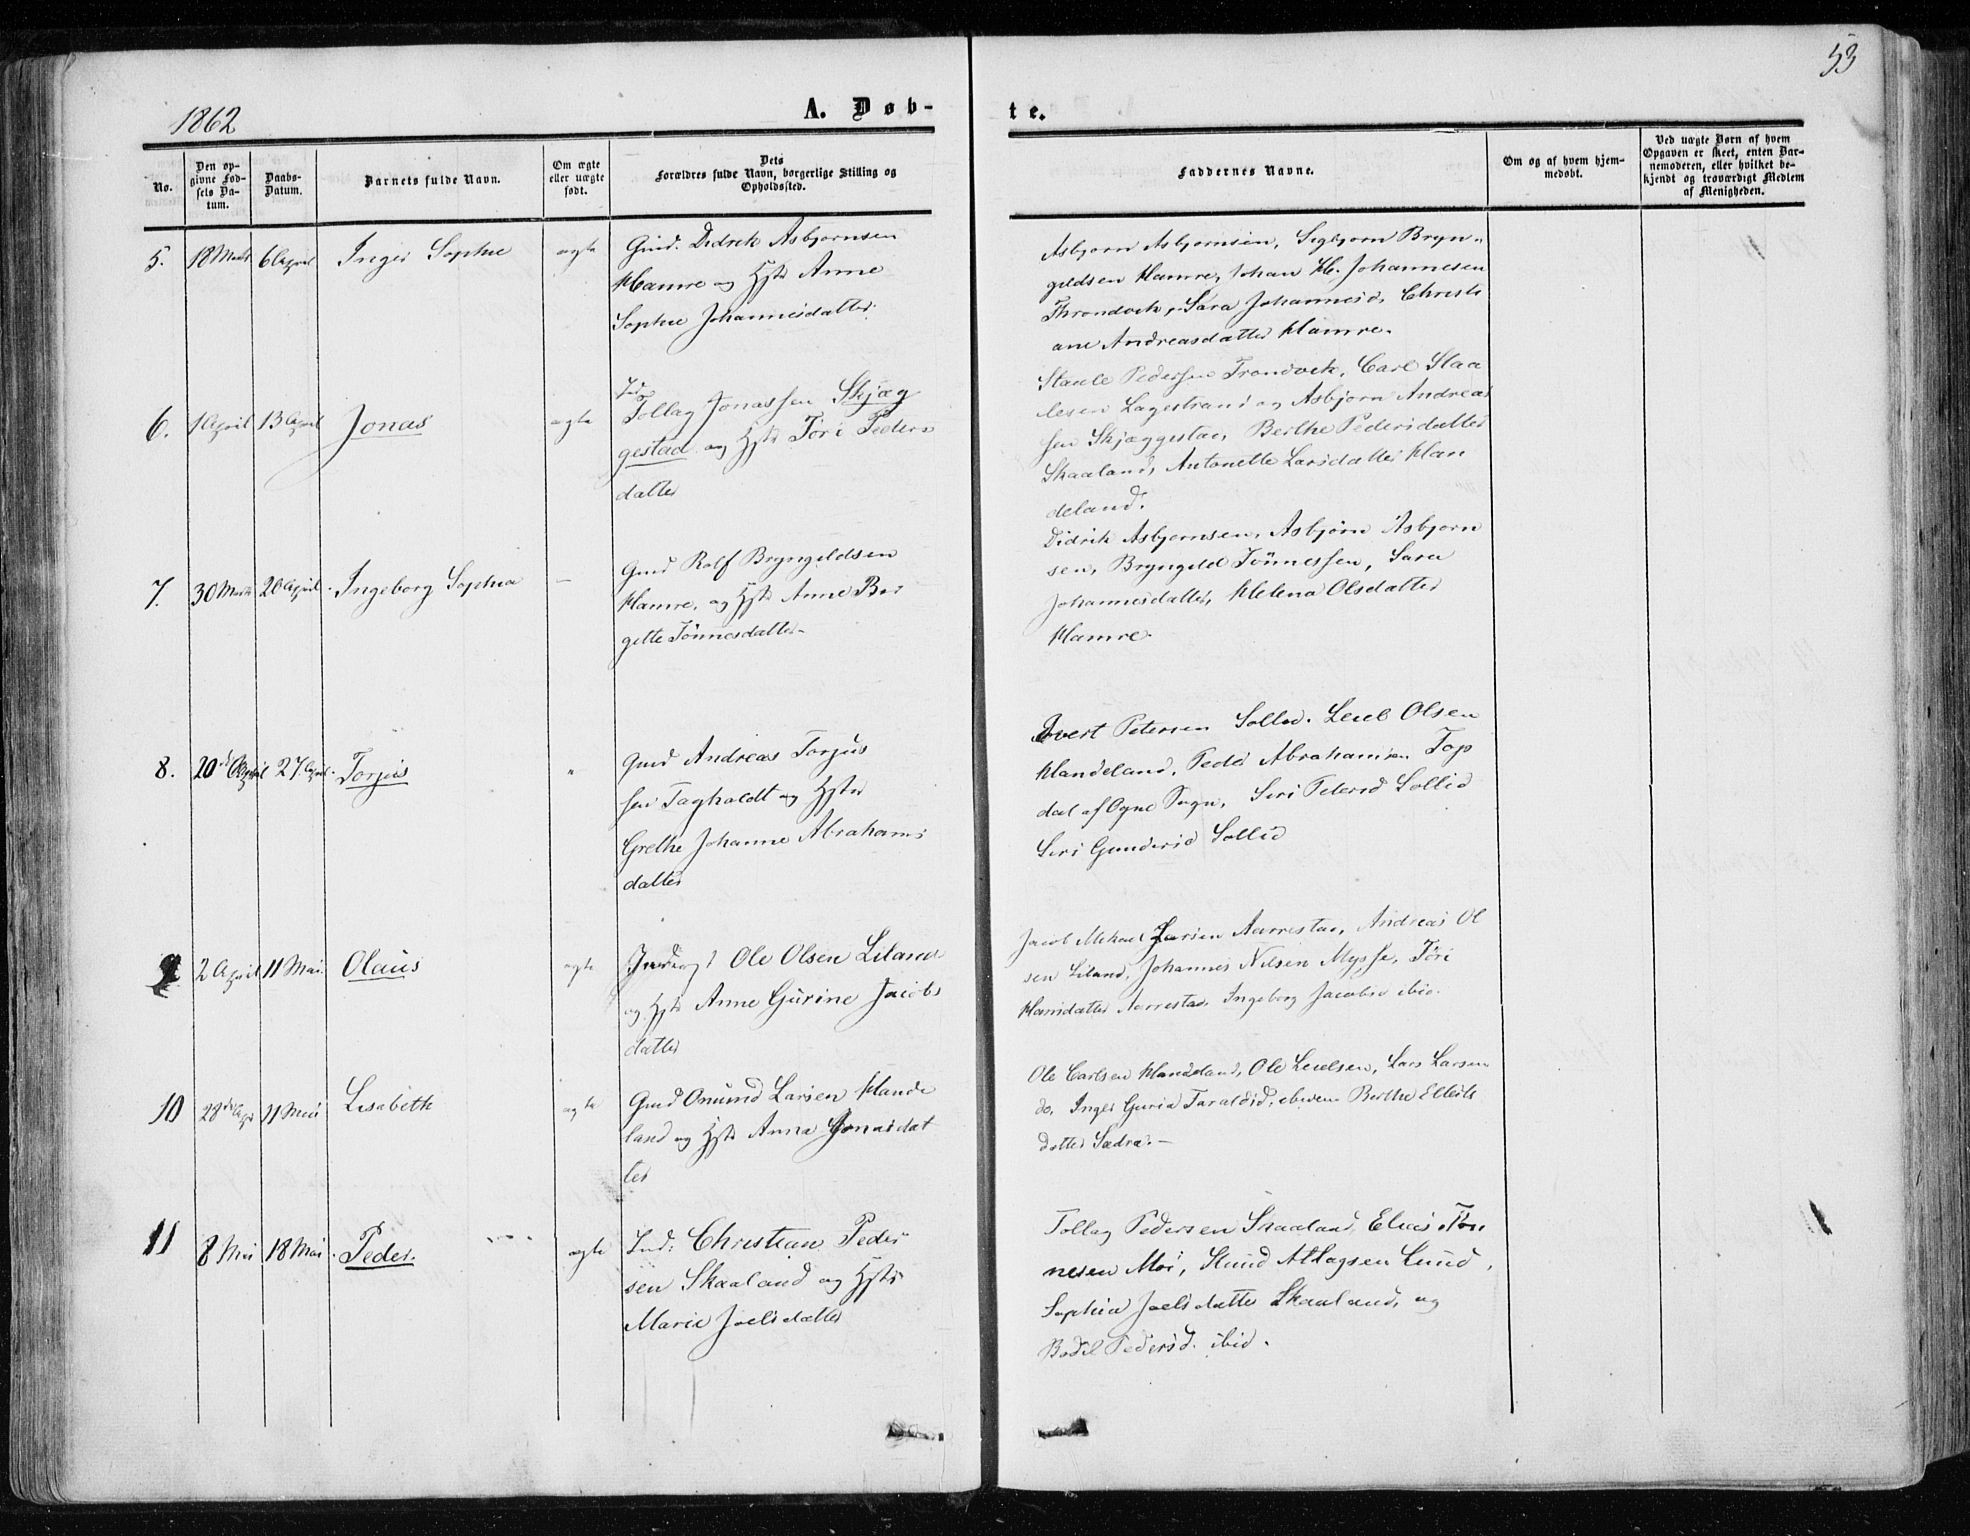 53
1862
A. Døb-
te.
No.
Den op-
givne Fød-
sels Da-
tum.
Daabs-
Datum.
Barnets fulde Navn.
Om ægte
eller uægte
født.
Dets
Forældres fulde Navn, borgerlige Stilling og
Opholdssted.
Faddernes Navne.
Om og af hvem hjem-
medøbt.
Ved uægte Børn af hvem
Opgaven er skeet, enten Bar-
nemoderen, eller hvilket be-
kjendt og troværdigt Medlem
af Menigheden.
5.
18 Marts
6 April
Inger Sophie
ægte
Gmd. Didrik Asbjornsen
Hamre og Hstr Anne
Sophie Johannesdatter
Asbjorn Asbjornsen, Sigbjorn Bryn-
gildsen Hamre, Johan H. Johannesen
Throndvik, Sara Johannesd. Christi
ane Andreasdatter Hamre.
6.
1 April
13 April
Jonas
ægte
Tollag Jonassen Skjæg
gestad og Hstr Tori Peders
datter
Staale Pedersen Trondvik, Carl Staa
lesen Lagestrand og Asbjorn Andreas
sen Skjæggestad, Berthe Pedersdatter
Skaaland, Antonette Larsdatter Han
deland.
7.
30 Marts
20 April
Ingeborg Sophia
—
Gmd Rolf Bryngeldsen
Hamre, og Hstr Anne Ber
gitte Tönnesdatter
Didrik Asbjornsen, Asbjörn Asbjorn
sen, Bryngeld Tönnessen, Sara
Johannesdatter, Helena Olsdatter
Hamre.
8.
20de April
27 April
Torjus
"
Gmd Andreas Torjus
sen Tagholdt og Hstr
Grethe Johanne Abrahams
datter
Evert Petersen Sollid. Leul Olsen
Handeland, Peder Abrahamsen Top
dal af Ogne Sogn, Siri Petersd Sollid
Siri Gundersd Sollid
9
2 April
11 Mai
Olaus
ægte
Ole Olsen Liland
og Hstr Anne Gurine Jacobs
datter
Jacob Mikael Larsen Aarrestad, Andreas Ol
sen Liland, Johannes Nilsen Mysse, Töri
Hansdatter Aarrestad. Ingeborg Jacobsd ibid.
10
28de April
11 Mai
Lisabeth
ægte
Gmd Omund Larsen Hande
land og Hstr Anna Jonasdat
ter
Ole Carlsen Handeland, Ole Leulsen, Lars Larsen
do. Inger Guria Taraldsd, Berthe Ellefs
datter Sædra.—
11
8 Mai
18 Mai
Peder.
ægte
Ind: Christian Peder
sen Skaaland og Hstr
Marie Joelsdatter
Tollag Pedersen Skaaland, Elias Tön
nesen Moi, Atlagsen Lund,
Sophia Joelsdatter Skaaland, og
Bodil Pedersd. ibid.